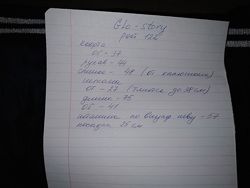 Glo-Story
рост 122
кофта
ОГ-37
рукав-44
спинка-48 (от капюшона)
штаны
ОТ-27 (тянется до 38 см)
длина-75
ОБ-41
штанина по внутр шву-57
посадка 25 см